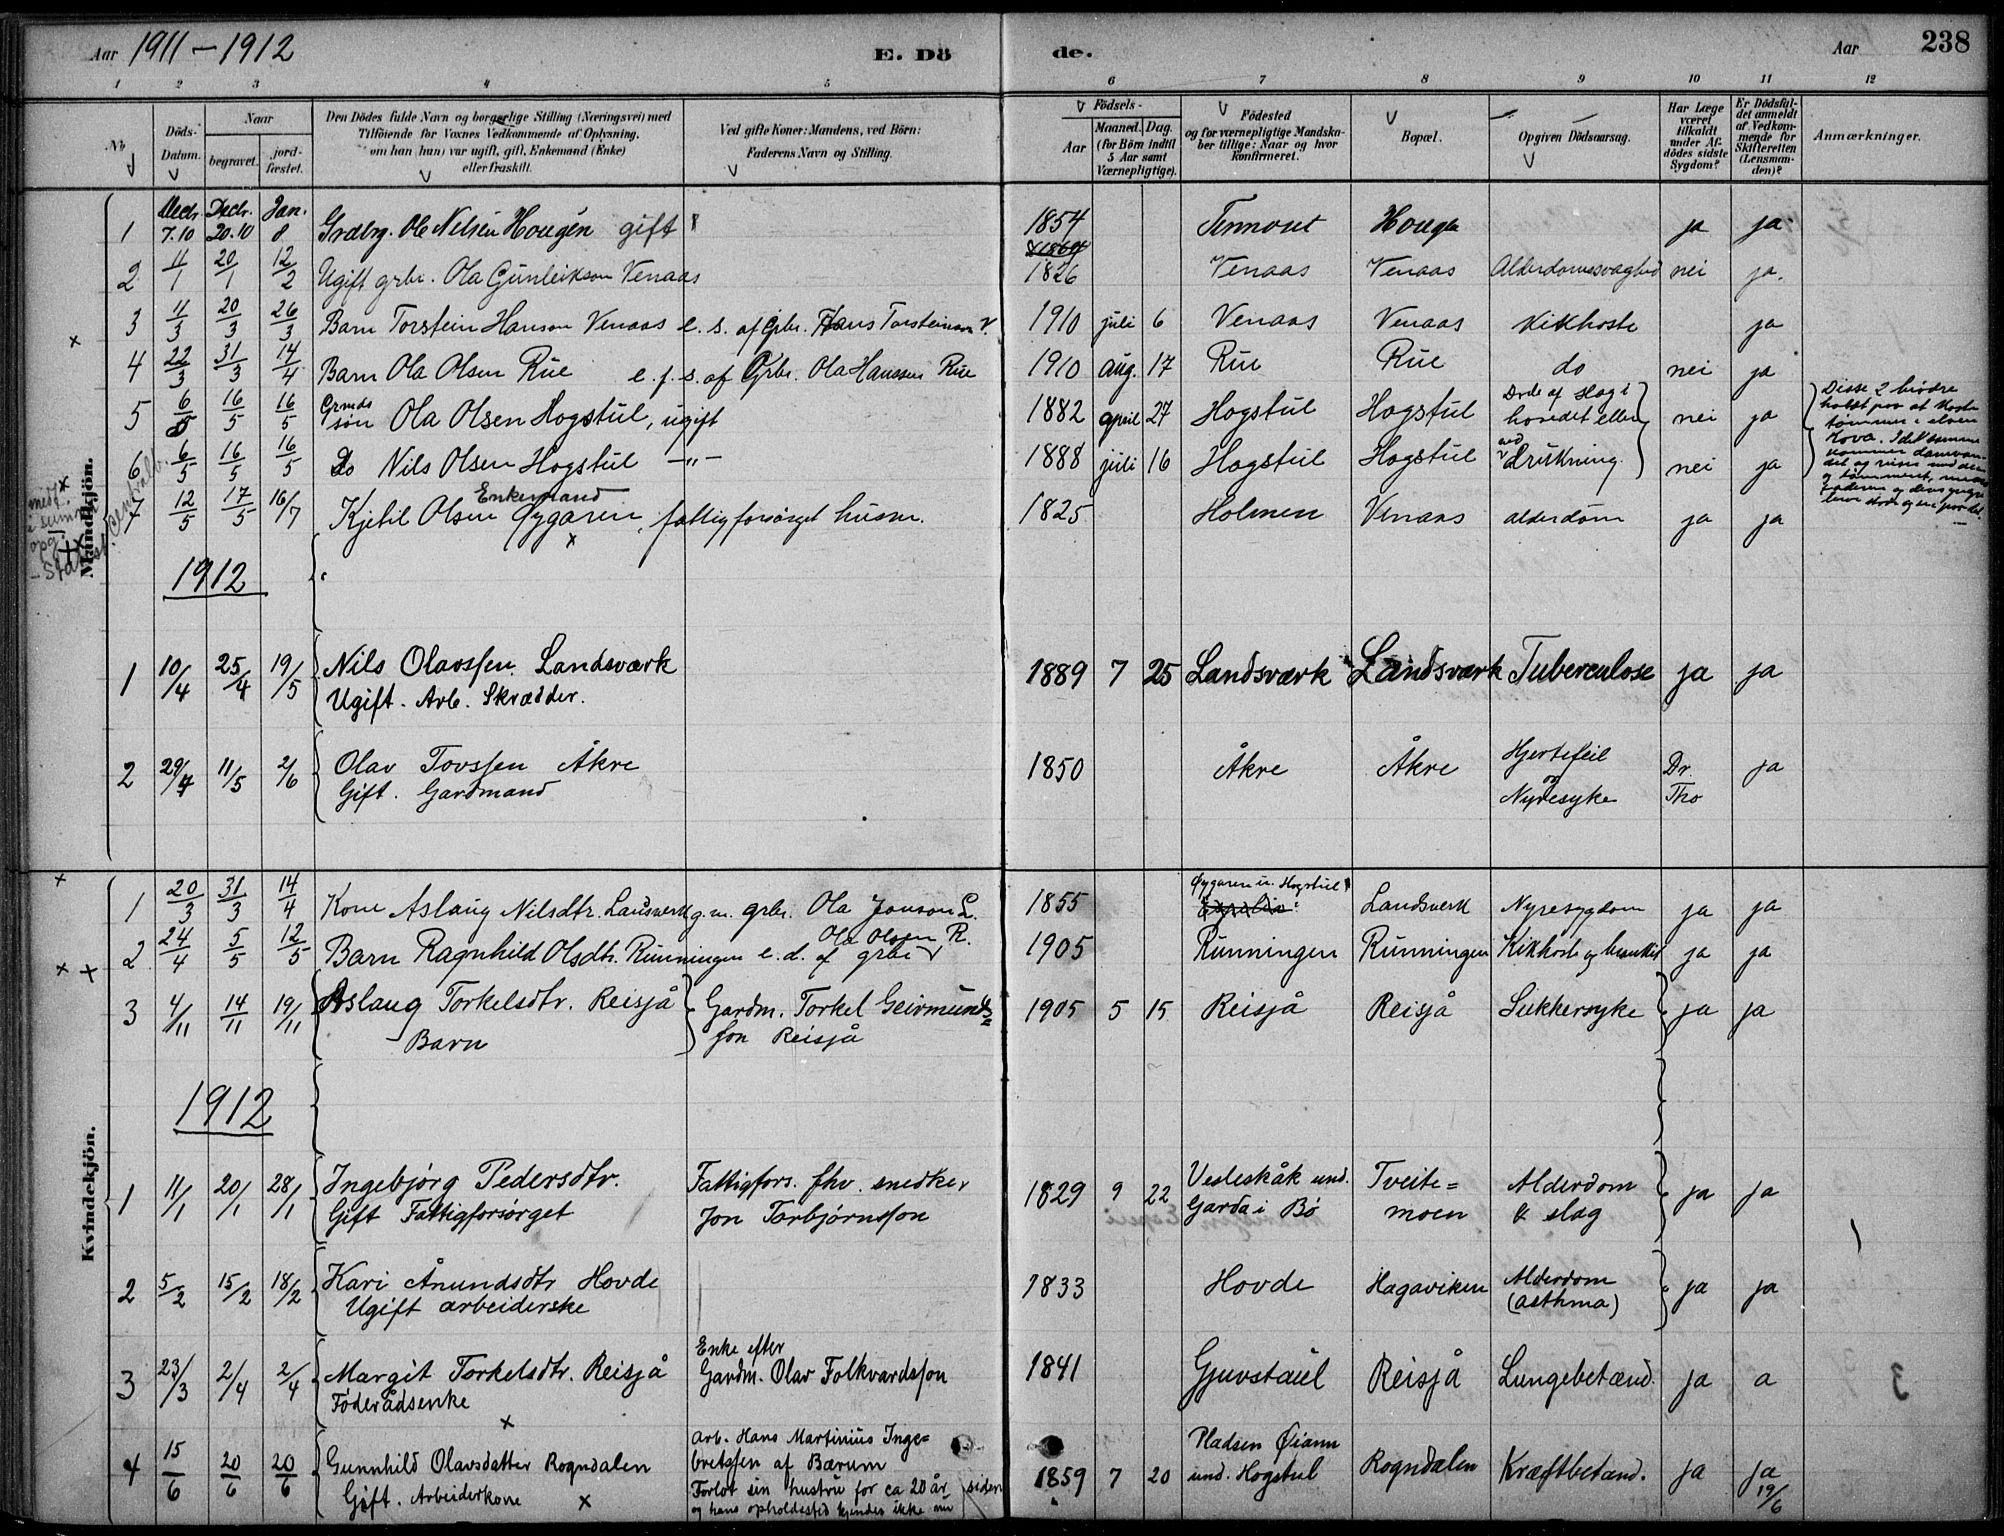 Aar 1911 – 1912 E. Dö de. Aar 238
1 2 3 4 5 6 7 8 9 10 11 12
No
Döds-Datum.
Naar
begravet.
jord-fæstet.
Den Dödes fulde Navn og borgerlige Stilling (Næringsvei) med
Tilföiende for Voxnes Vedkommende af Oplysning,
om han (hun) var ugift, gift, Enkemand (Enke)
eller fraskilt.
Ved gifte Koner: Mandens, ved Börn:
Faderens Navn og Stilling.
Födsels-
Aar
Maaned. Dag.
(for Börn indtil
5 Aar samt
Værnepligtige).
Födested
og for værnepligtige Mandska-
ber tillige: Naar og hvor
konfirmeret.
Bopæl.
Opgiven Dödsaarsag.
Har Læge
været
tilkaldt
under Af-
dödes sidste
Sygdom?
Er Dödsfal-
det anmeldt
af Vedkom-
mende for
Skifteretten
(Lensman-
den)?
Anmærkninger.
Mandkjön.
Decbr. Decbr. Jan.
1 7.10 20.10 8 Grdbrg. Ole Nelsen Hougen gift 1854 Tinnoset Hougen ja ja
2 11/1 20/1 12/2 Ugift grbr. Ola Gunleikson Venaas 1826 Venaas Venaas Alderdomssvaghed nei ja.
3 11/3 20/3 26/3 Barn Torstein Hanson Venaas e. s. af Grbr. Hans Torsteinson V. 1910 juli 6 Venaas Venaas Kikhoste ja
4 22/3 31/3 14/4 Barn Ola Olsen Rue e. f. s. af Grbr. Ola Hanssen Rue 1910 aug. 17 Rue Rue do nei ja
5 6/5 16/5 16/5 Grmds søn Ola Olsen Hogstul, ugift 1882 april 27 Hogstul Hogstul Døde af slag i hovedet eller nei ja
6 6/5 16/5 16/5 Do Nils Olsen Hogstul —„— 1888 juli 16 Hogstul Hogstul ved drukning. nei ja
Disse 2 brødre
holdt paa at
tømmer i elven
Enkemand
7 12/5 17/5 16/7 Kjetil Olsen Øygaren, fattigforsørget husm. 1825 Holmen Venaas alderdom ja ja
1912
1 10/4 25/4 19/5 Nils Olavssen Landsværk 1889 7 25 Landsværk Landsværk Tuberculose ja ja
Ugift. Arb. Skrædder.
2 29/4 11/5 2/6 Olav Tovssen Åkre 1850 Åkre Åkre Hjertefeil og Nyresyke Dr. Tho ja
Gift. Gardmand
Kvindekjön.
1 20/3 31/3 14/4 Kone Aslaug Nilsdtr. Landsverk g. m. grbr. Ola Jonson L. 1855 Øygaren u. Hogstul Landsverk Nyresygdom ja ja
2 24/4 5/5 12/5 Barn Ragnhild Olsdtr. Runningen e. d. af grbr. Ola Olsen R. 1905 Runningen Runningen Kikhoste og bronkit ja ja
3 4/11 14/11 19/11 Aslaug Torkelsdtr. Reisjå Gardm. Torkel Geirmunds= 1905 5 15 Reisjå Reisjå Sukkersyke ja ja
Barn son Reisjå
1912
1 11/1 20/1 28/1 Ingebjørg Pedersdtr. Fattigfors. fhv. snedker 1829 9 22 Vesleskåk und. Tveite= Alderdom ja ja
Gift Fattigforsørget Jon Torbjørnsson Garda i Bø moen & slag
2 5/2 15/2 18/2 Kari Ånundsdtr Hovde 1833 Hovde Hagaviken Alderdom ja ja
Ugift arbeiderske (asthma)
Enke efter
3 23/3 2/4 2/4 Margit Torkelsdtr. Reisjå Gardm. Olav Folkvardsson 1841 Gjuvstaul Reisjå Lungebetænd. ja a
Føderådsenke
Arb. Hans Martinius Inge= Pladsen Øiann
4 15/6 20/6 20/6 Gunnhild Olavsdatter Rogndalen bretssen af Bærum 1859 7 20 und. Hogstul Rogndalen Kræftbetænd. ja ja 19/6
Gift. Arbeiderkone Forlot sin hustru for ca 20 år siden
og hans opholdssted kjendes ikke nu